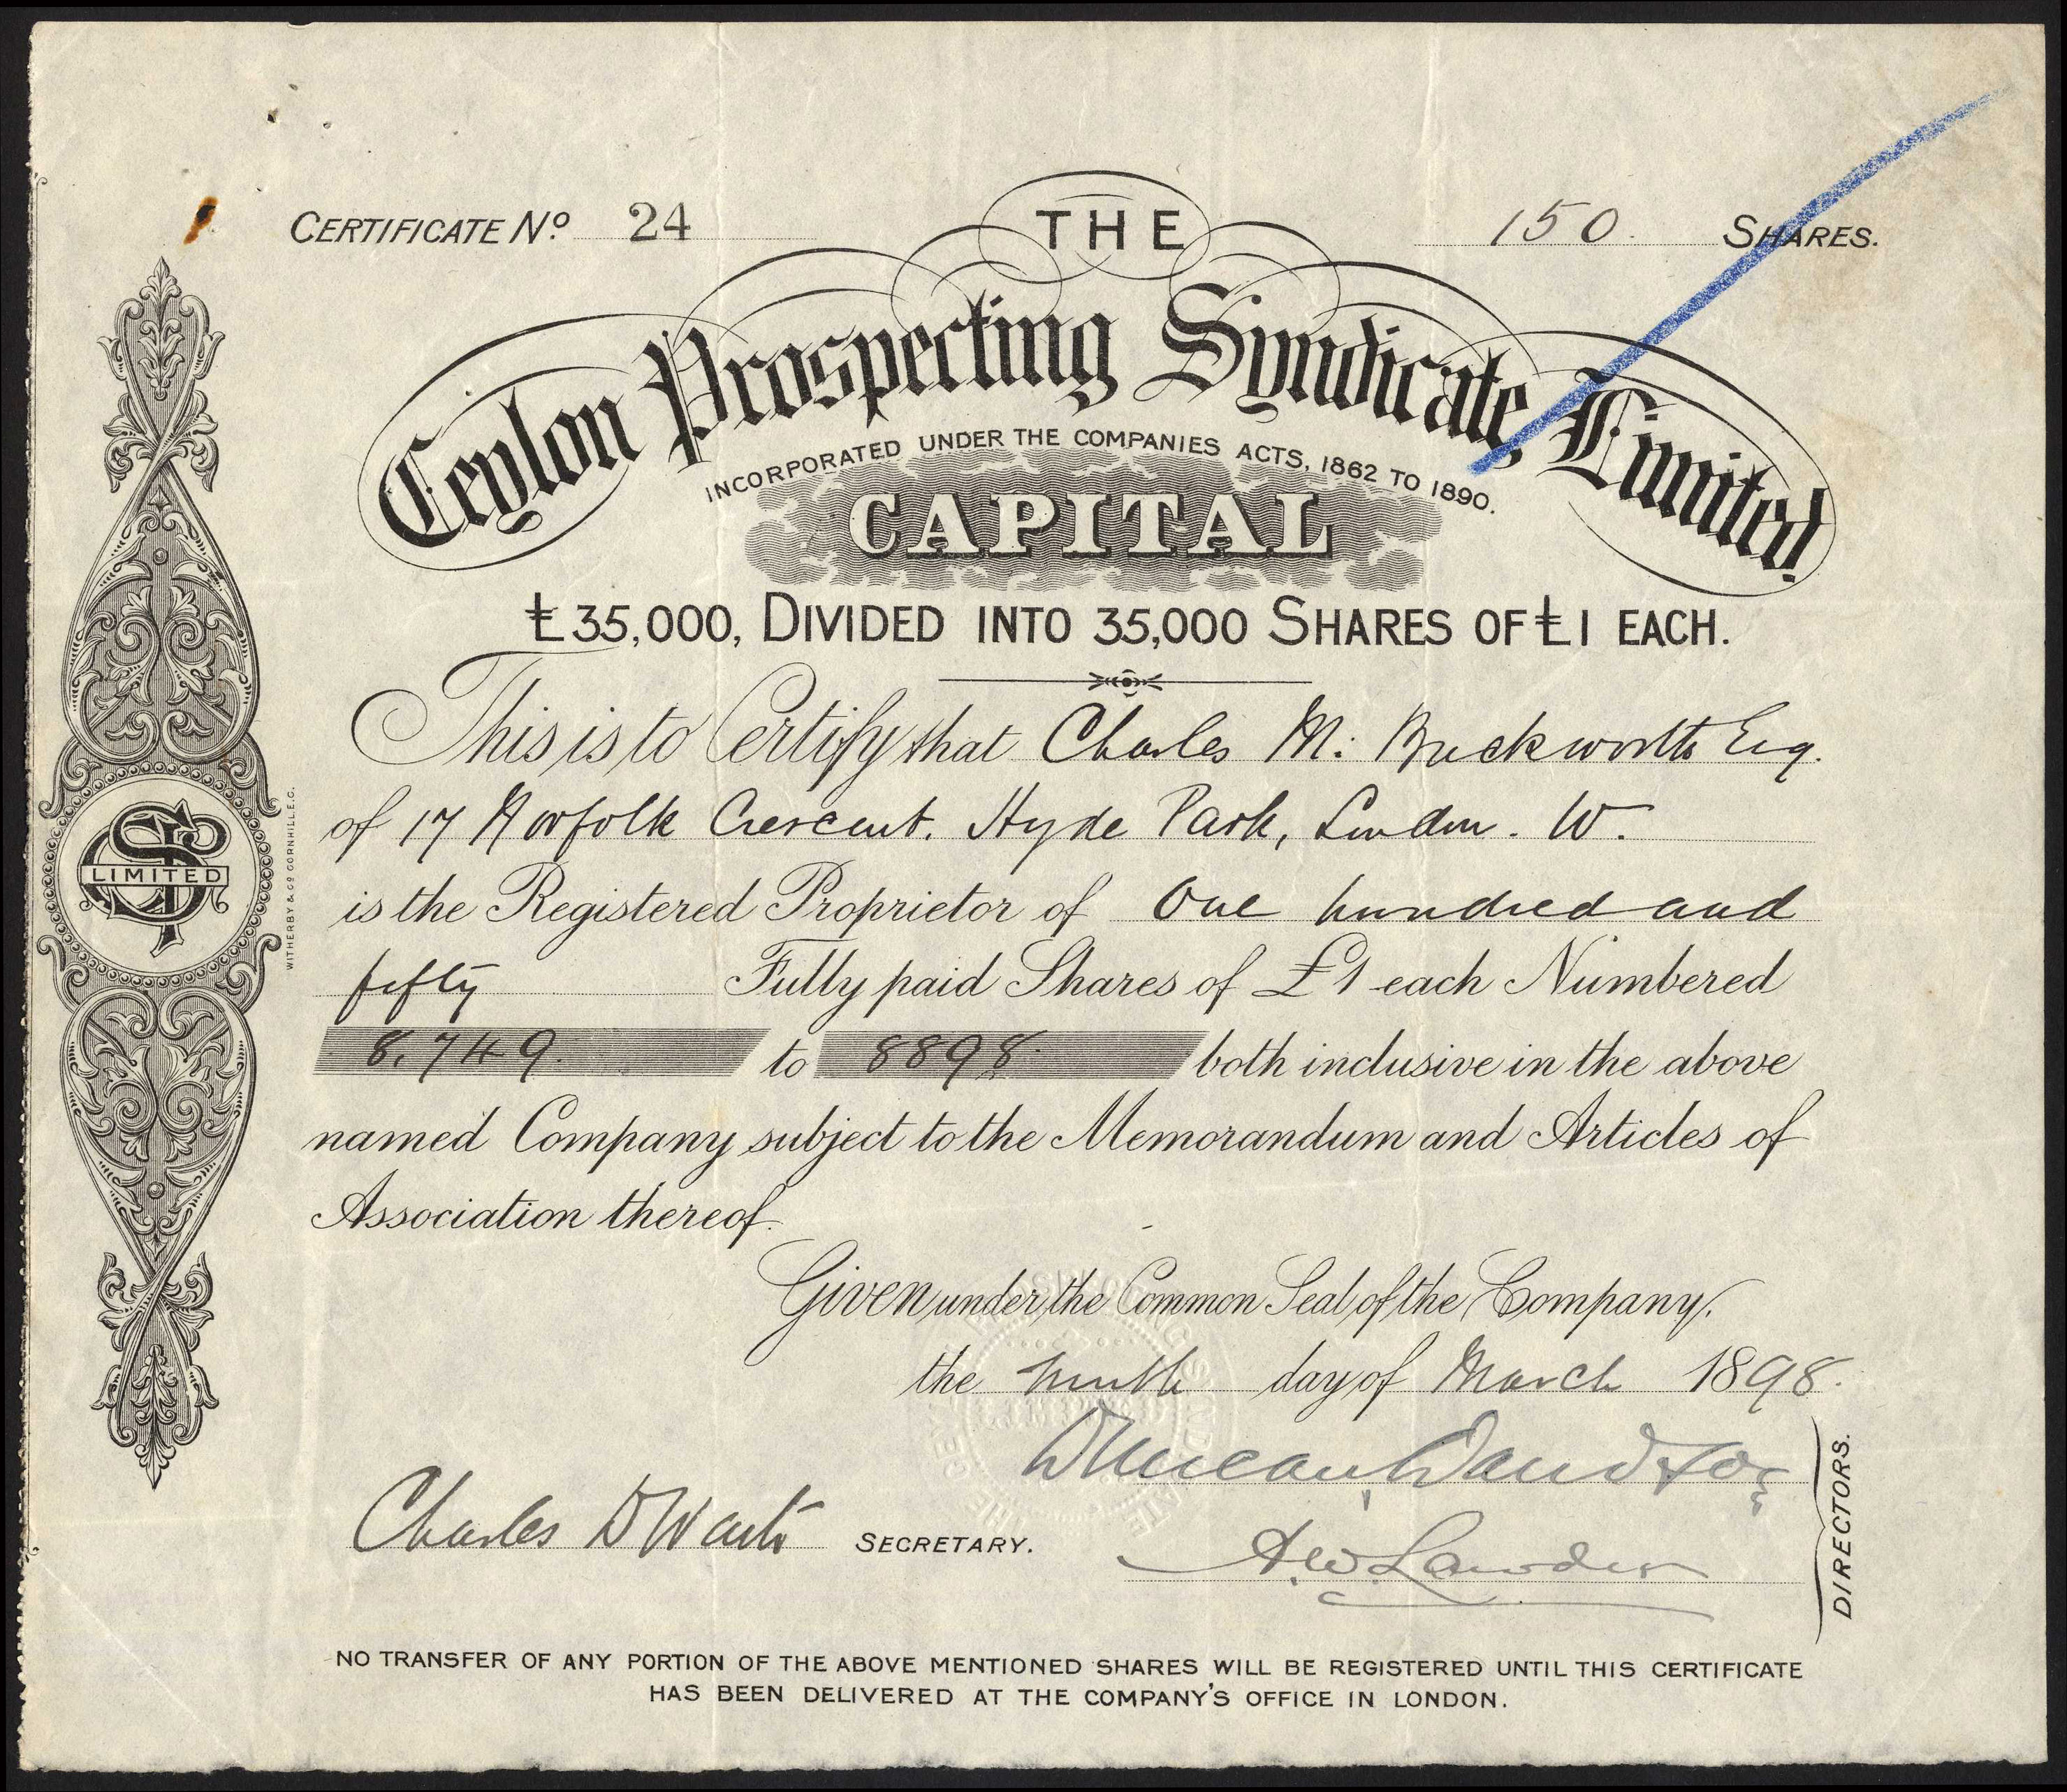 CERTIFICATE Nº 24
150. SHARES.
THE
Ceylon Prospecting Syndicate, Limited.
INCORPORATED UNDER THE COMPANIES ACTS, 1862 TO 1890.
CAPITAL
£35,000, DIVIDED INTO 35,000 SHARES OF £1 EACH.
This is to Certify that Charles M. Buckworth Esq.
of 17 Norfolk Crescent. Hyde Park, London. W.
is the Registered Proprietor of One hundred and
fifty Fully paid Shares of £1 each Numbered
8,749 to 8898 both inclusive in the above
named Company subject to the Memorandum and Articles of
Association thereof.
Given under the Common Seal of the Company,
the ninth day of March 1898.
Duncan Davidson
Charles D SECRETARY.
A.W. Lawder
DIRECTORS.
NO TRANSFER OF ANY PORTION OF THE ABOVE MENTIONED SHARES WILL BE REGISTERED UNTIL THIS CERTIFICATE
HAS BEEN DELIVERED AT THE COMPANY'S OFFICE IN LONDON.
LIMITED
WITHERBY & Cº CORNHILL.E.C.